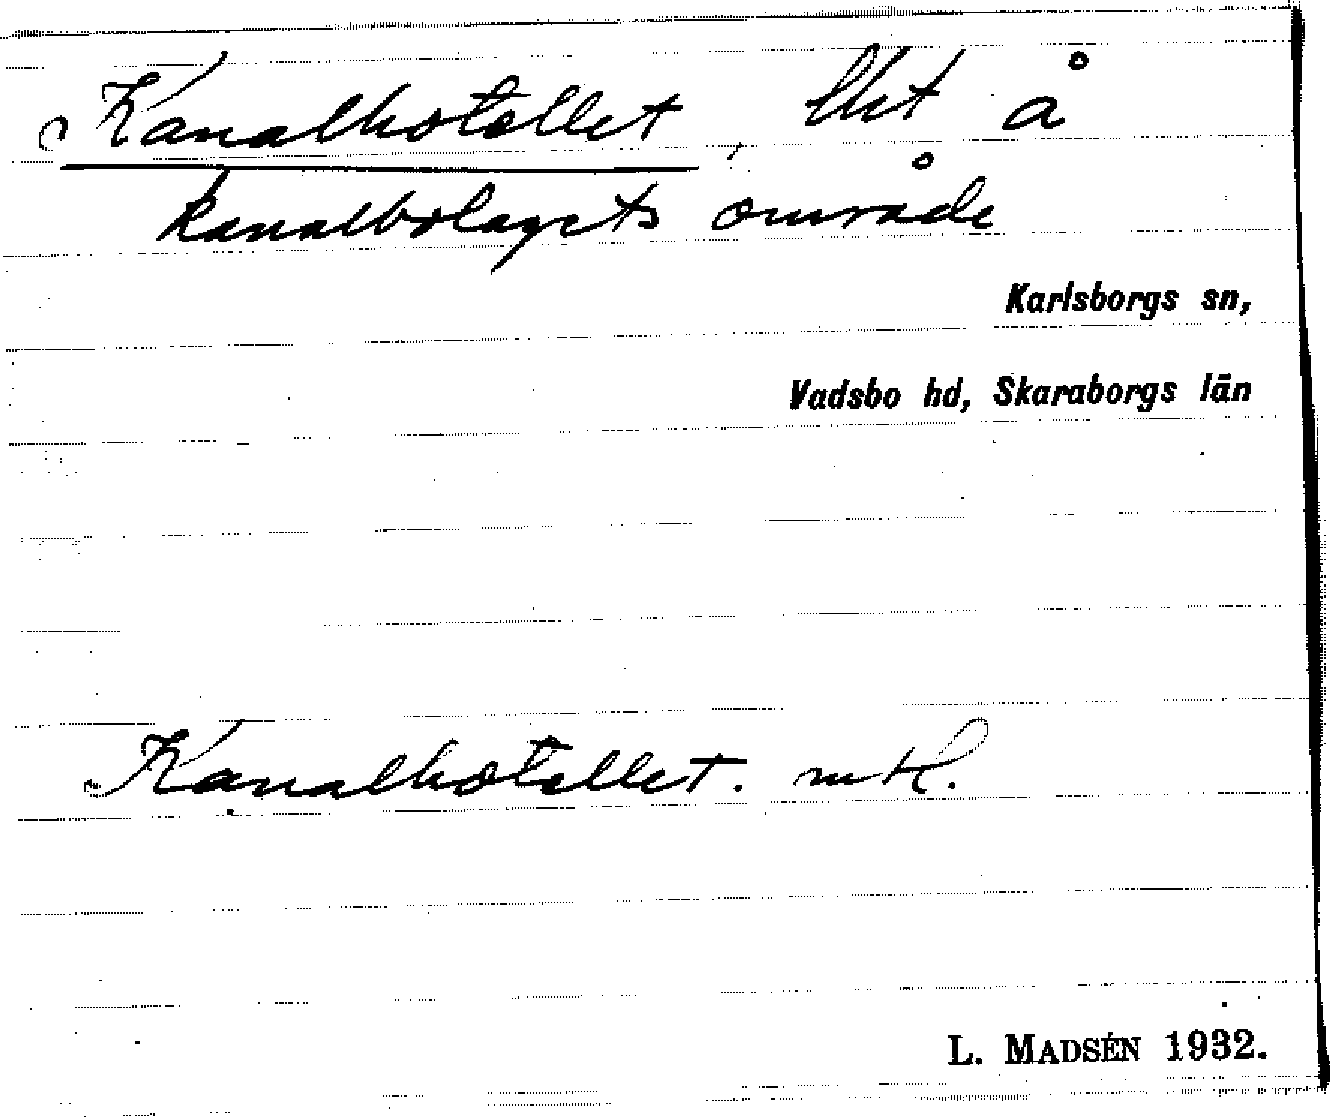 Kanalhotellet, lht å
kanalbolagets område
Karlsborgs sn,
Vadsbo hd, Skaraborgs län
Kanalhotellet. mk.
L. MADSÉN 1932.